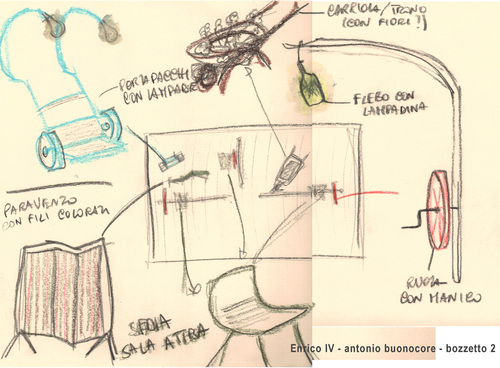 CARRIOLA/TRONO
(CON FIORI?)
PORTAPACCHI
CON LAMPADE
FLEBO CON
LAMPADINA
PARAVENTO
CON FILI COLORATI
SEDIA
SALA ATTESA
RUOTA
CON MANICO
Enrico IV - antonio buonocore - bozzetto 2